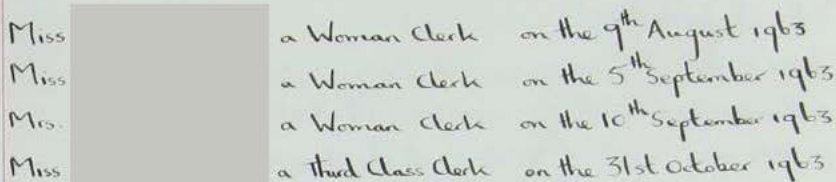 Miss a Woman Clerk on the 9th August 1963
Miss a Woman Clerk on the 5th September 1963
Mrs. a Woman Clerk on the 10th September 1963
Miss a Third Class Clerk on the 31st October 1963